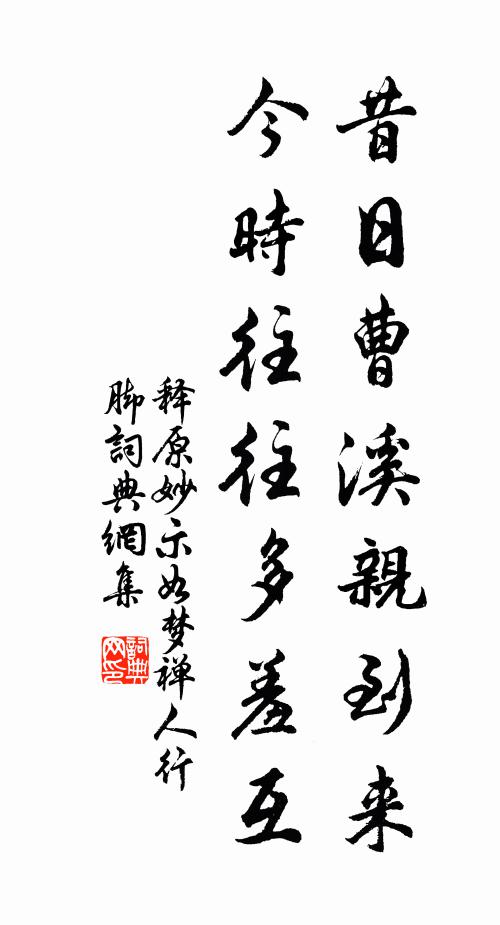 昔日曹溪親到来
今時往往多差互
释原妙示如梦禅人行
脚詞典網集
詞典
网印